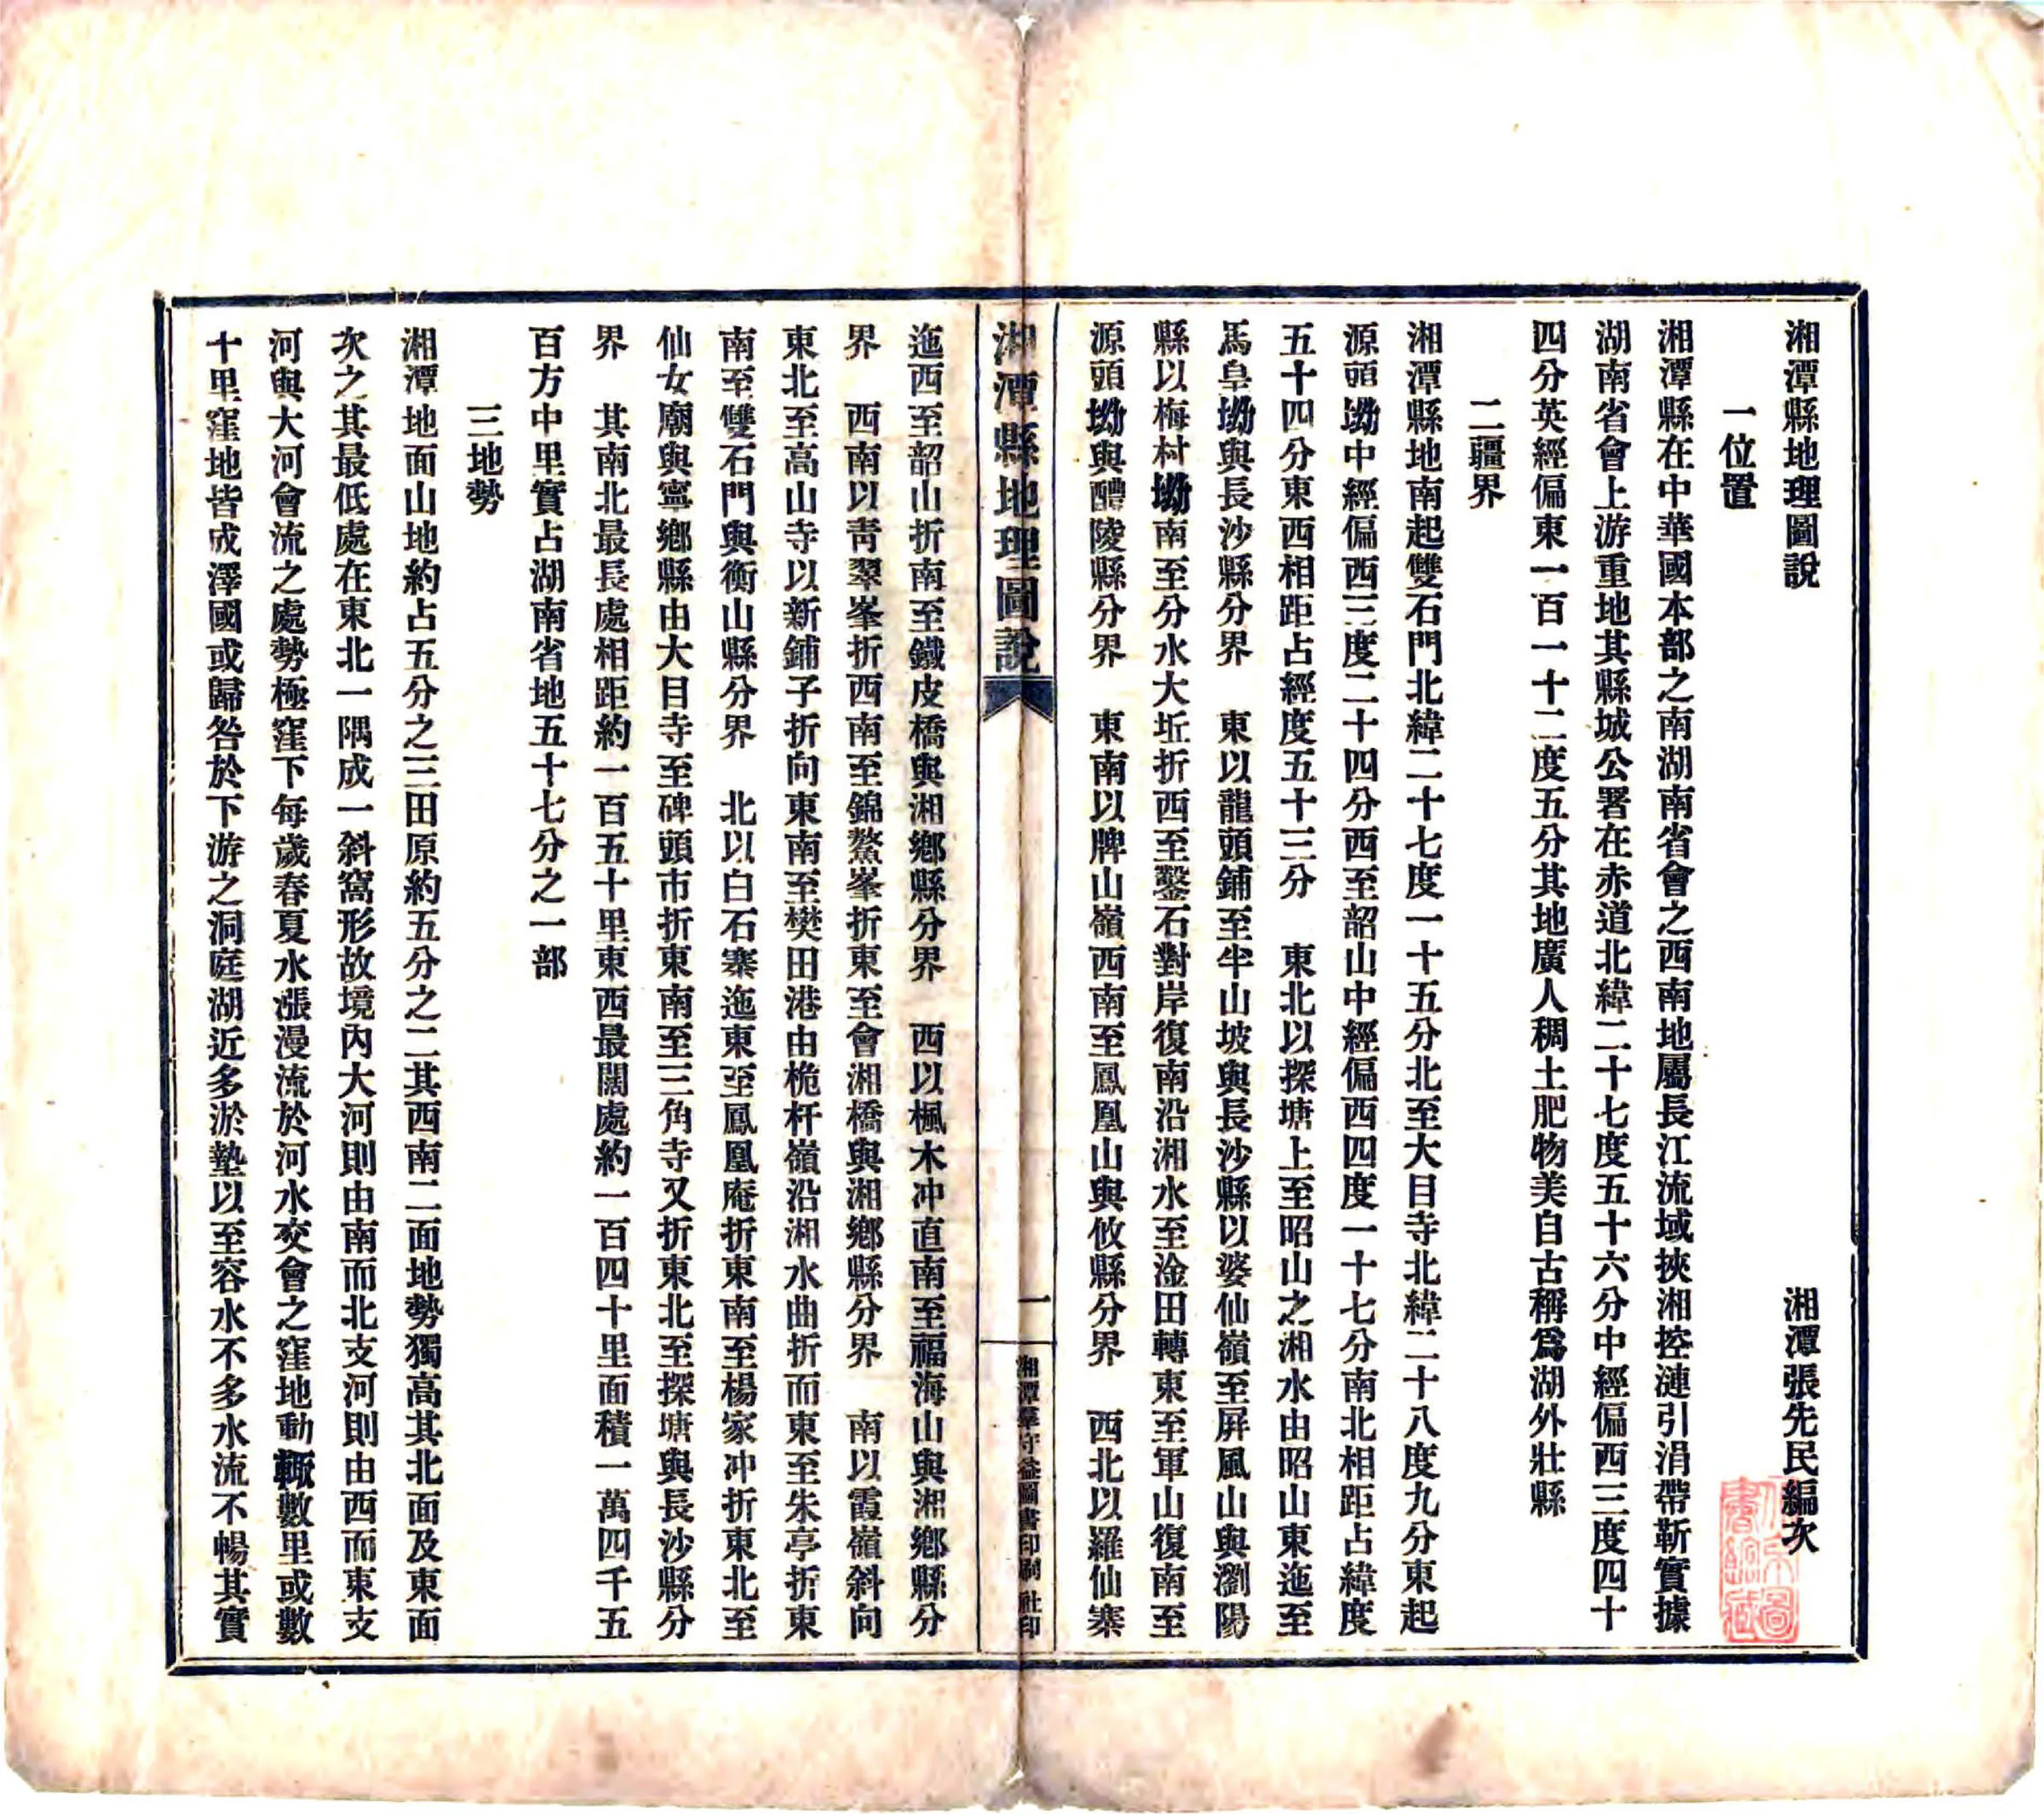 湘潭縣地理圖說　湘潭張先民編次
一位置
湘潭縣在中華國本部之南湖南省會之西南地屬長江流域挾湘控漣引涓帶靳實據
湖南省會上游重地其縣城公署在赤道北緯二十七度五十六分中經偏西三度四十
四分英經偏東一百一十二度五分其地廣人稠土肥物美自古稱爲湖外壯縣
二疆界
湘潭縣地南起雙石門北緯二十七度一十五分北至大目寺北緯二十八度九分東起
源頭坳中經偏西三度二十四分西至韶山中經偏西四度一十七分南北相距占緯度
五十四分東西相距占經度五十三分　東北以探塘上至昭山之湘水由昭山東迤至
馬皇坳與長沙縣分界　東以龍頭鋪至半山坡與長沙縣以婆仙嶺至屏風山與瀏陽
縣以梅村坳南至分水大坵折西至鑿石對岸復南沿湘水至淦田轉東至軍山復南至
源頭坳與醴陵縣分界　東南以牌山嶺西南至鳳凰山與攸縣分界　西北以羅仙寨
湘潭縣地理圖說　一　湘潭羣守益圖書印刷社印
迤西至韶山折南至鐵皮橋與湘鄉縣分界　西以楓木冲直南至福海山與湘鄉縣分
界　西南以靑翠峯折西南至錦鰲峯折東至會湘橋與湘鄉縣分界　南以霞嶺斜向
東北至高山寺以新鋪子折向東南至樊田港由桅杆嶺沿湘水曲折而東至朱亭折東
南至雙石門與衡山縣分界　北以白石寨迤東至鳳凰庵折東南至楊家冲折東北至
仙女廟與寧鄉縣由大目寺至碑頭市折東南至三角寺又折東北至探塘與長沙縣分
界　其南北最長處相距約一百五十里東西最闊處約一百四十里面積一萬四千五
百方中里實占湖南省地五十七分之一部
三地勢
湘潭地面山地約占五分之三田原約五分之二其西南二面地勢獨高其北面及東面
次之其最低處在東北一隅成一斜窩形故境內大河則由南而北支河則由西而東支
河與大河會流之處勢極窪下每歲春夏水漲漫流於河水交會之窪地動輒數里或數
十里窪地皆成澤國或歸咎於下游之洞庭湖近多淤墊以至容水不多水流不暢其實